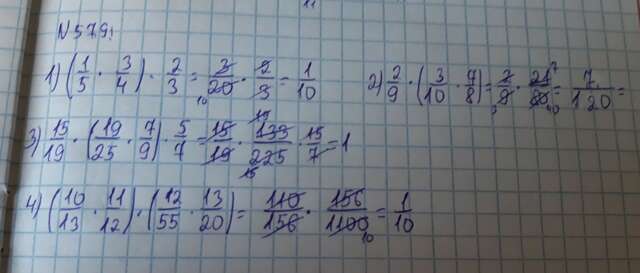 N579.
1) (1/5 · 3/4) · 2/3 = 3/20 · 2/3 = 1/10 2) 2/9 · (3/10 · 7/8) = 2/9 · 21/80 = 7/120 =
3) 15/19 · (19/25 · 7/9) · 5/7 = 15/19 · 133/225 · 15/7 = 1
4) (10/13 · 11/12) · (12/55 · 13/20) = 110/156 · 156/1100 = 1/10